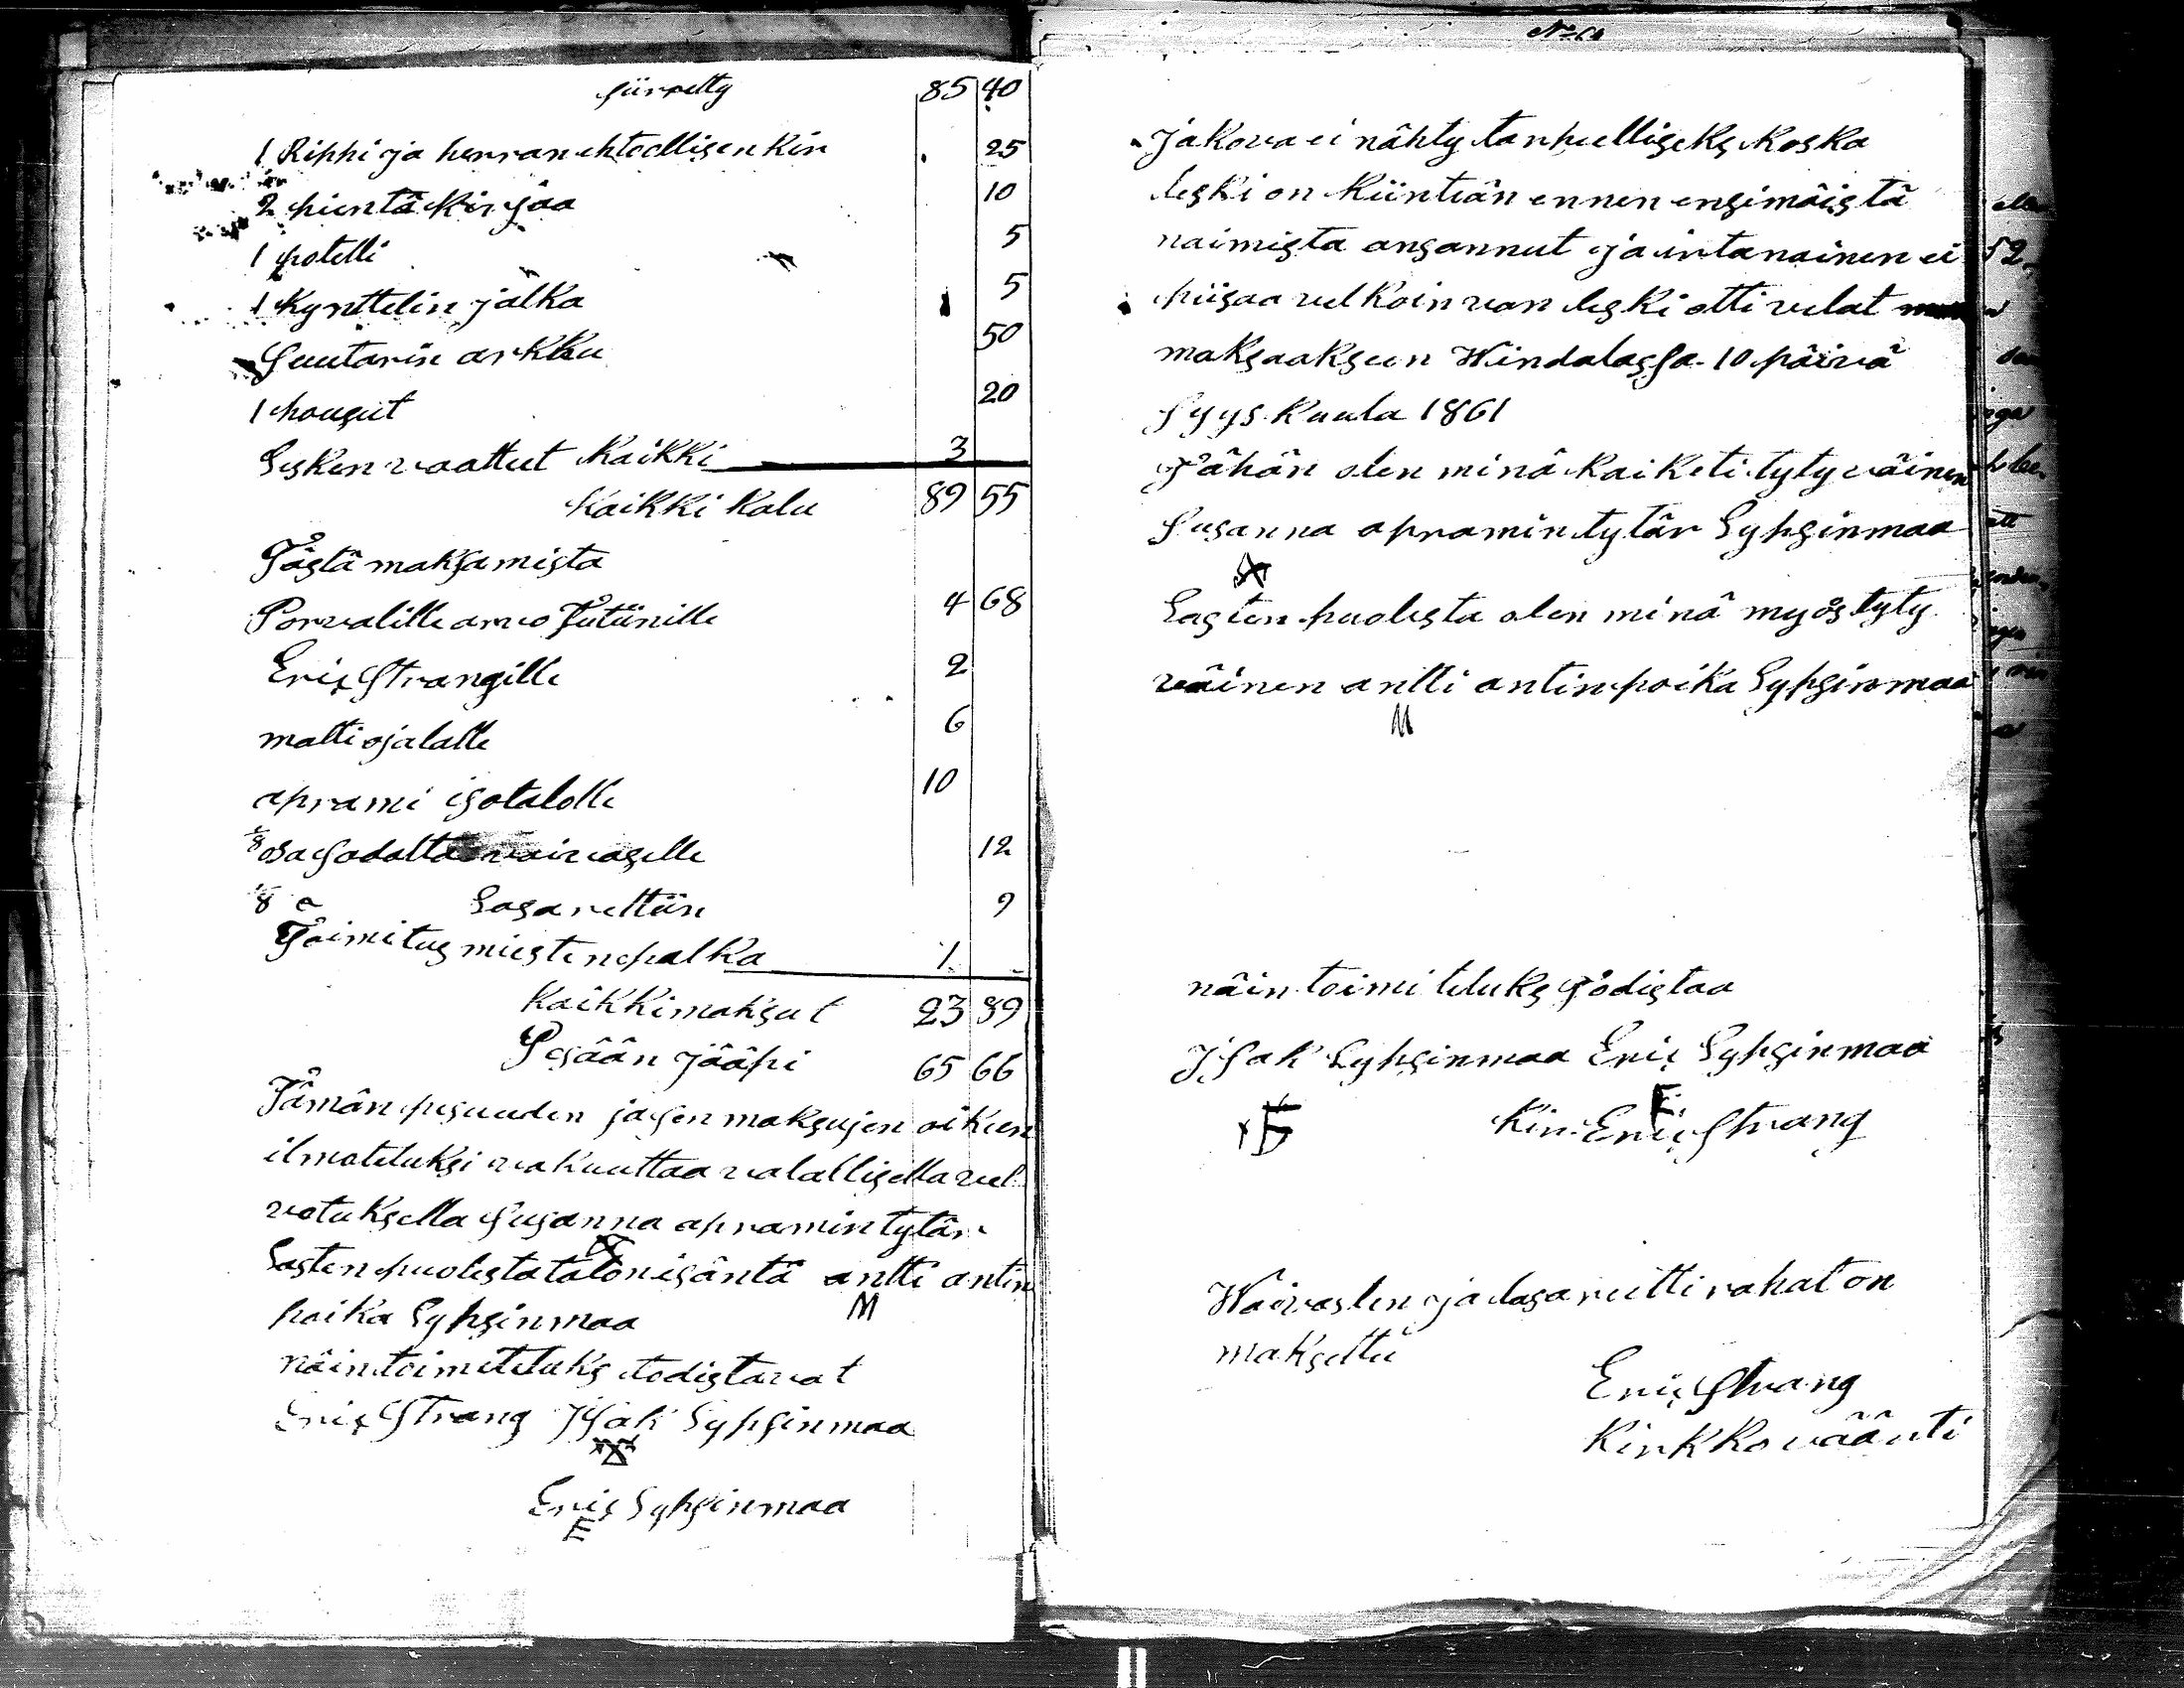 siirretty 85 40
1 Rippi ja herran ehtoollisen kir 25
2 pientä kirjaa 10
1 potelli 5
1 kynttelin jalka 5
Suutarin arkku 50
1 housut 20
Lesken vaattet kaikki 3
kaikki kalu 89 55
Tästä maksamista
Porvalille arvo Tutiinille 4 68
Eric Strangille 2
matti ojalalle 6
aprami isotalolle 10
1/8 osa sadalta vaivaselle 12
1/8 a Lasarettiin 9
Toimitus miesten palka 1 -
kaikki maksut 23 89
Pesään jääpi 65 66
Tämän pesuuden ja sen maksujen oikeen
ilmoteluksi vakuuttaa valallisella vel
votuksella Susanna apramin tytär
Lasten puolesta talon isäntä antti antin
poika Sypsinmaa
M
näin toimiteluks todistavat
Eric Strang Isak Sypsinmaa
Eric Sypsinmaa
E
Jakova ei nähty tarpeelliseks koska
leski on kiintiän ennen ensimäistä
naimista ansannut ja intanainen ei
piisaa velkoin van leski otti velat
maksaakseen Windalassa 10 päivä
Syys kuula 1861
Tähän olen minä kaiketi tyty väinen
Susanna apramin tytär Sypsinmaa
Lasten puolesta olen minä myös tyty
väinen antti antin poika Sypsinmaa
M
näin toimiteluks todistaa
Isak Sypsinmaa Eric Sypsinmaa
E
Kir. Eric Strang
Waivasten ja lasareitti rahat on
maksettu
Eric Strang
Kirkko väänti